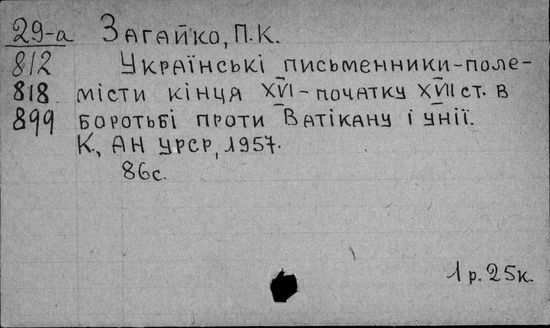 29-а Загайко, П.К.
812 Українські письменники-поле-
818 місти кінця XVI-початку XVII ст. в
899 боротьбі проти Ватікану і унії.
К., АН УРСР, 1957.
86с.
1р.25к.